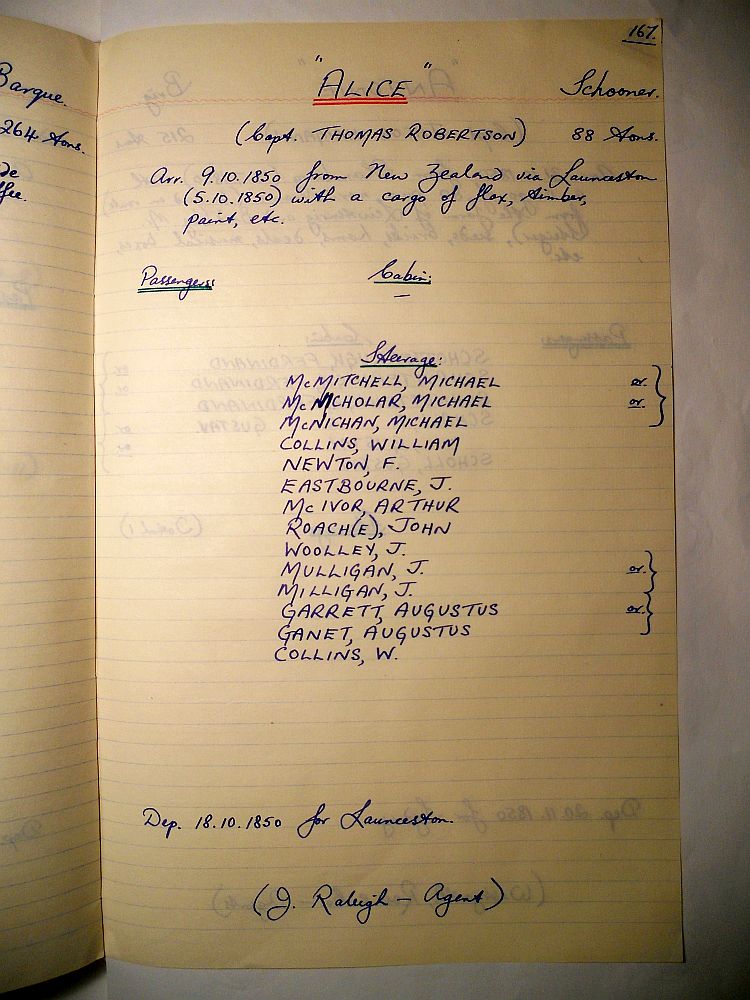 Barque.
264 tons.
167.
"ALICE" Schooner.
(Capt. THOMAS ROBERTSON) 88 tons.
Arr. 9.10.1850 from New Zealand via Launceston
(5.10.1850) with a cargo of flax, timber,
paint, etc.
Passengers: Cabin:
—
Steerage:
McMITCHELL, MICHAEL or
McNICHOLAR, MICHAEL or
McNICHAN, MICHAEL
COLLINS, WILLIAM
NEWTON, F.
EASTBOURNE, J.
McIVOR, ARTHUR
ROACH(E), JOHN
WOOLLEY, J.
MULLIGAN, J. or
MILLIGAN, J.
GARRETT, AUGUSTUS or
GANET, AUGUSTUS
COLLINS, W.
Dep. 18.10.1850 for Launceston.
(J. Raleigh – Agent)